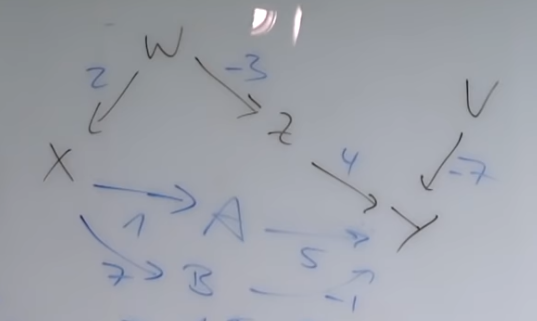 W
2 -3
V
Z
X 4 -7
1 A Y
5
7 B -1